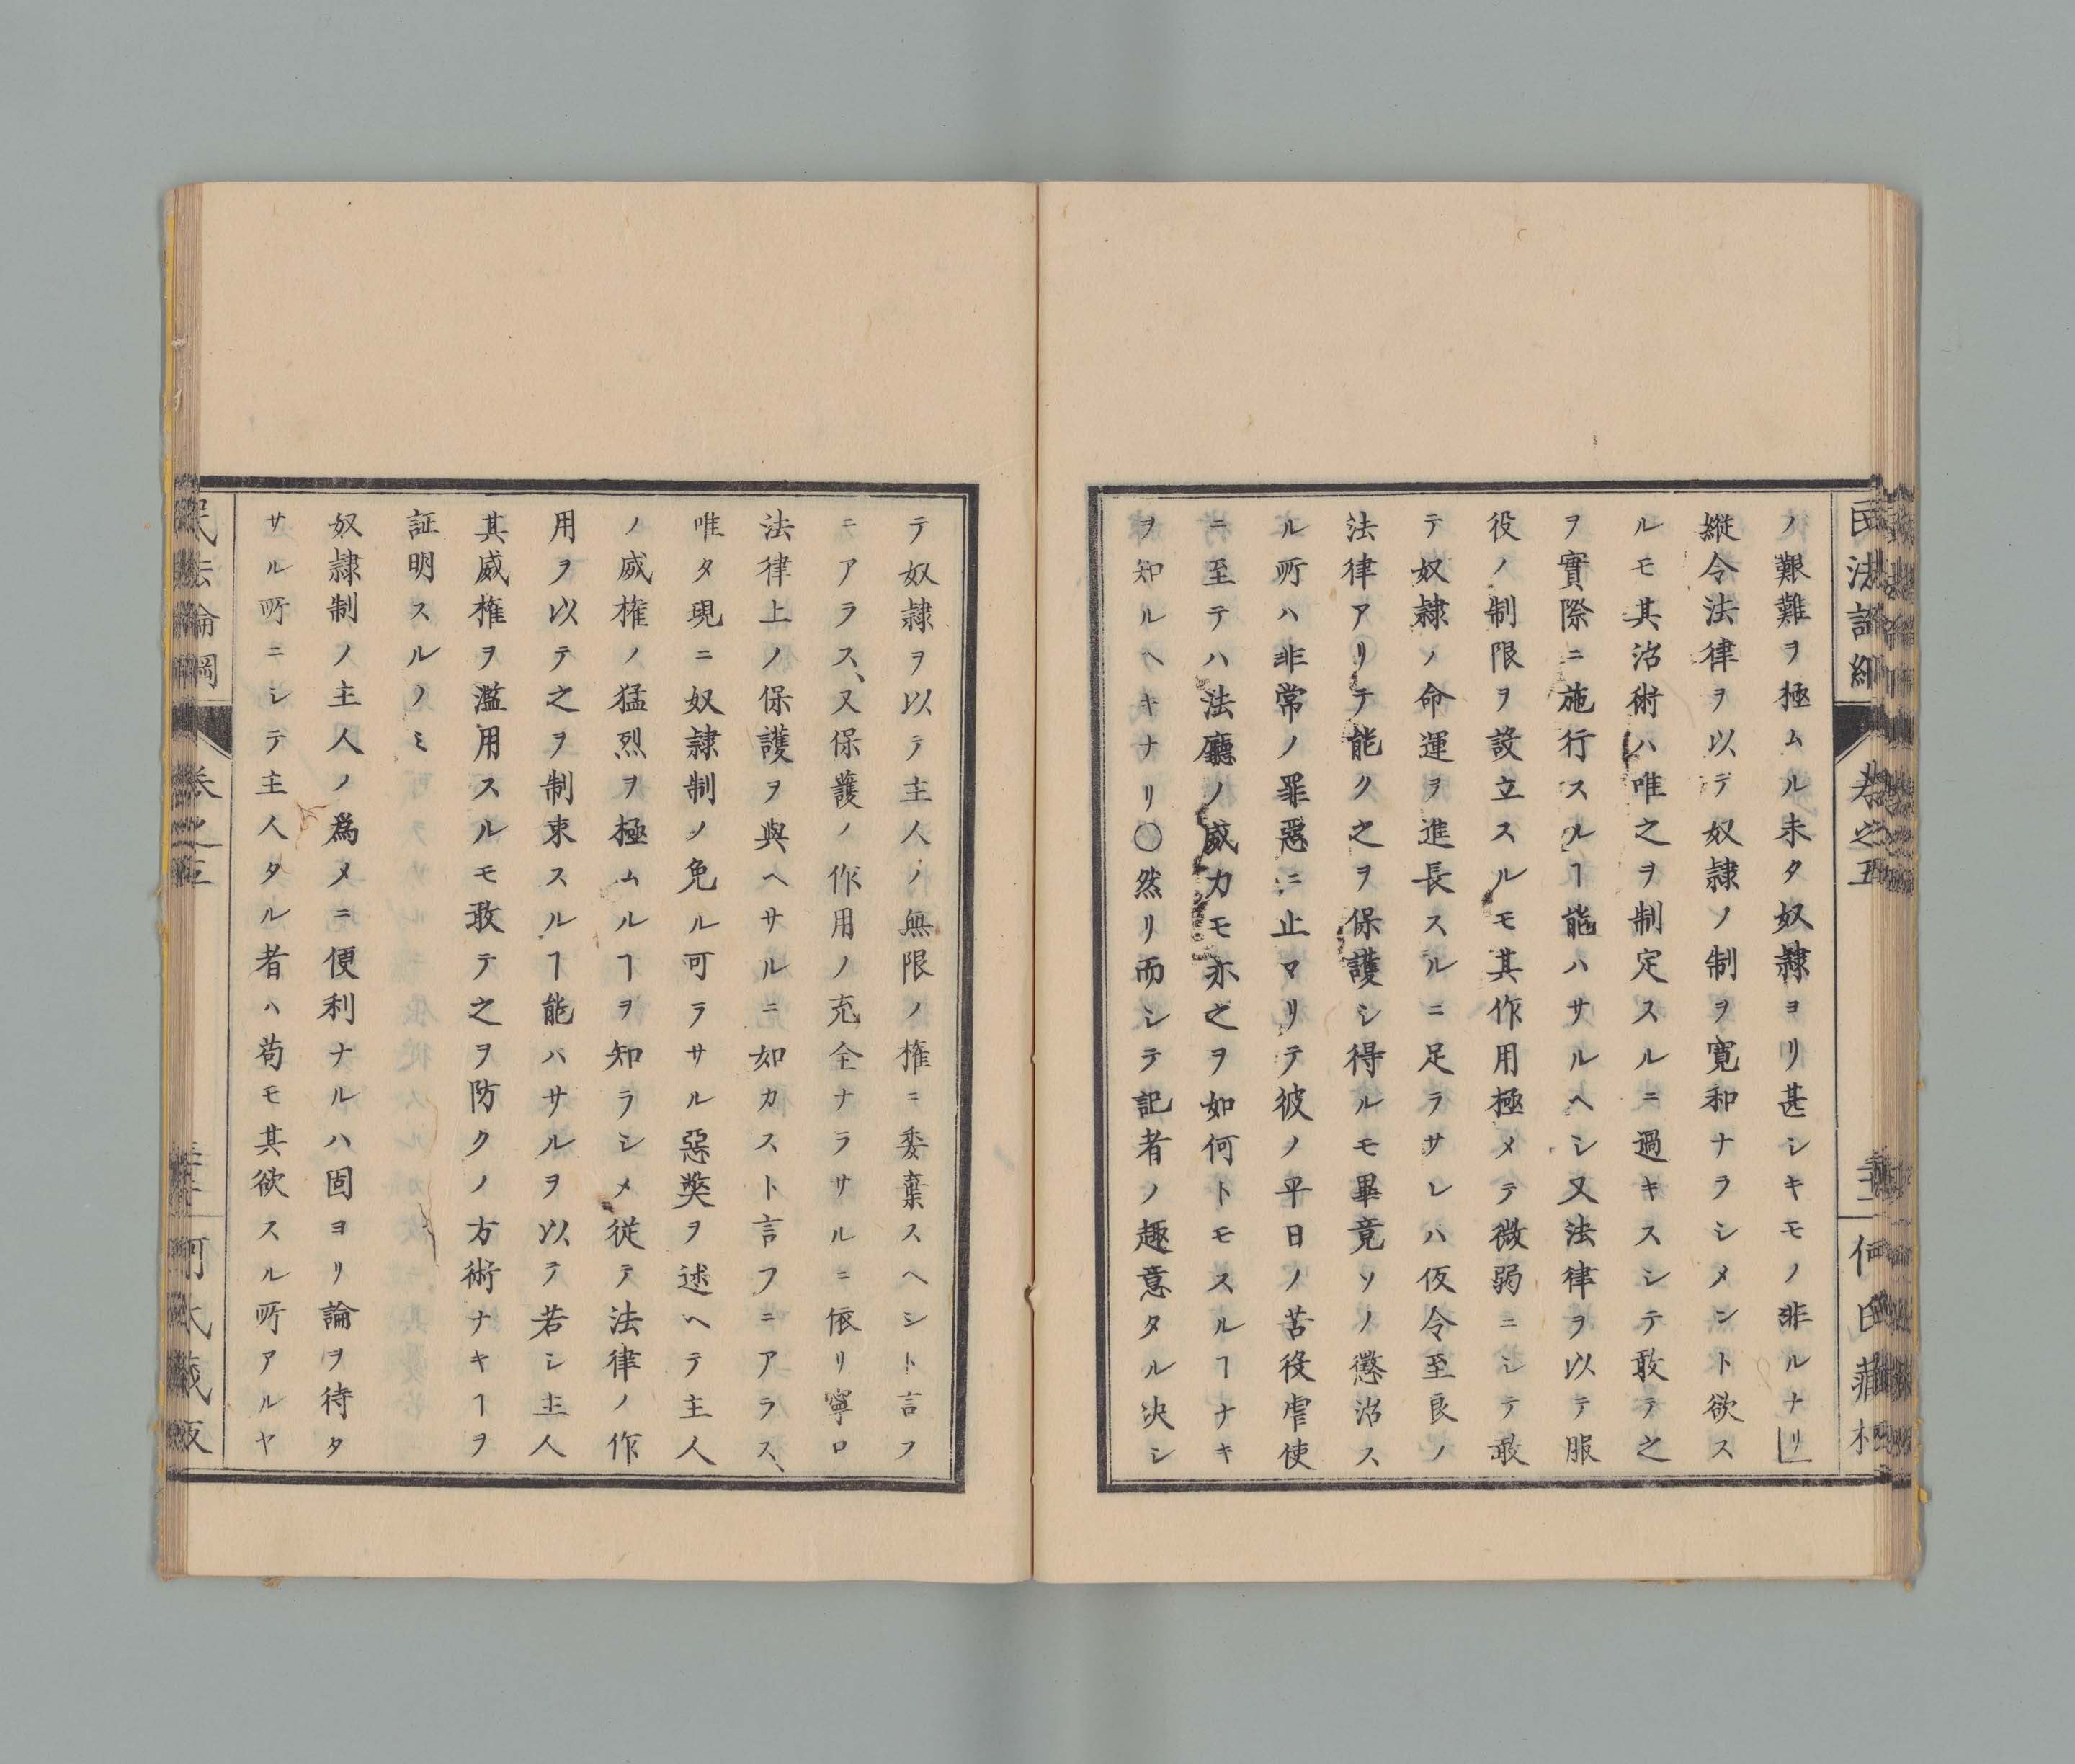 ノ艱難ヲ極ムル未タ奴隷ヨリ甚シキモノ非ルナリ」
縦令法律ヲ以テ奴隷ノ制ヲ寛和ナラシメント欲ス
ルモ其治術ハ唯之ヲ制定スルニ過キスシテ敢テ之
ヲ實際ニ施行スルヿ能ハサルヘシ又法律ヲ以テ服
役ノ制限ヲ設立スルモ其作用極メテ微弱ニシテ敢
テ奴隷ノ命運ヲ進長スルニ足ラサレハ仮令至良ノ
法律アリテ能ク之ヲ保護シ得ルモ畢竟ソノ懲治ス
ル所ハ非常ノ罪惡ニ止マリテ彼ノ平日ノ苦役虐使
ニ至テハ法廳ノ威力モ亦之ヲ如何トモスルヿナキ
ヲ知ルヘキナリ○然リ而シテ記者ノ趣意タル决シ
テ奴隷ヲ以テ主人ノ無限ノ権ニ委棄スヘシト言フ
ニアラス、又保護ノ作用ノ充全ナラサルニ依リ寧ロ
法律上ノ保護ヲ與ヘサルニ如カスト言フニアラス、
唯タ現ニ奴隷制ノ免ル可ラサル惡獘ヲ述ヘテ主人
ノ威権ノ猛烈ヲ極ムルヿヲ知ラシメ従テ法律ノ作
用ヲ以テ之ヲ制束スルヿ能ハサルヲ以テ若シ主人
其威権ヲ濫用スルモ敢テ之ヲ防クノ方術ナキヿヲ
証明スルノミ
奴隷制ノ主人ノ爲メニ便利ナルハ固ヨリ論ヲ待タ
サル所ニシテ主人タル者ハ苟モ其欲スル所アルヤ
民法論綱
卷之五
何氏藏版